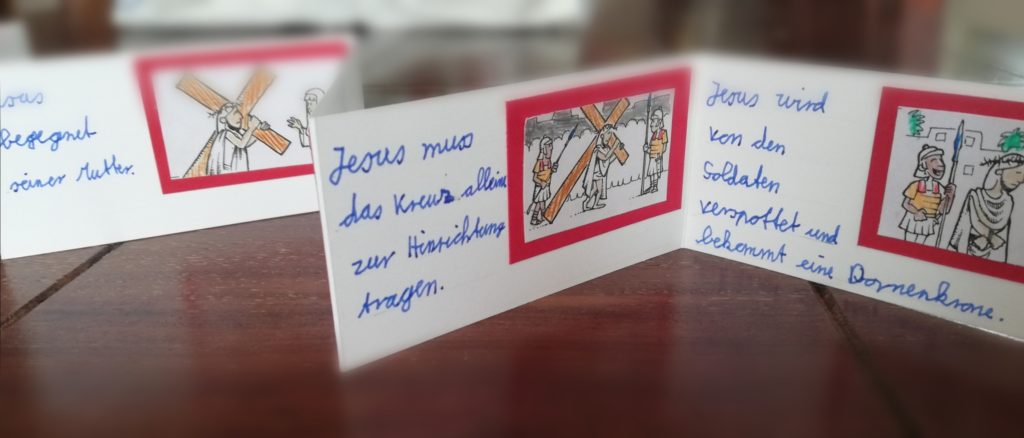 Jesus
begegnet
seiner Mutter.
Jesus muss
das Kreuz alleine
zur Hinrichtung
tragen.
Jesus wird
von den
Soldaten
verspottet und
bekommt eine Dornenkrone.